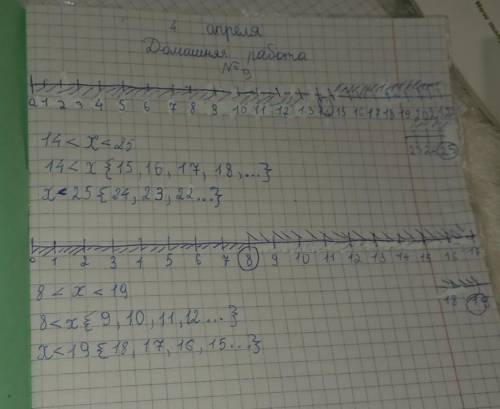 4 апреля
Домашняя работа
№9
0 1 2 3 4 5 6 7 8 9 10 11 12 13 14 15 16 17 18 19 20 21 22
23 24 25
14 < x < 25
14 < x {15, 16, 17, 18, ...}
x < 25 {24, 23, 22...}
0 1 2 3 4 5 6 7 8 9 10 11 12 13 14 15 16 17
18 19
8 < x < 19
8 < x {9, 10, 11, 12...}
x < 19 {18, 17, 16, 15...}